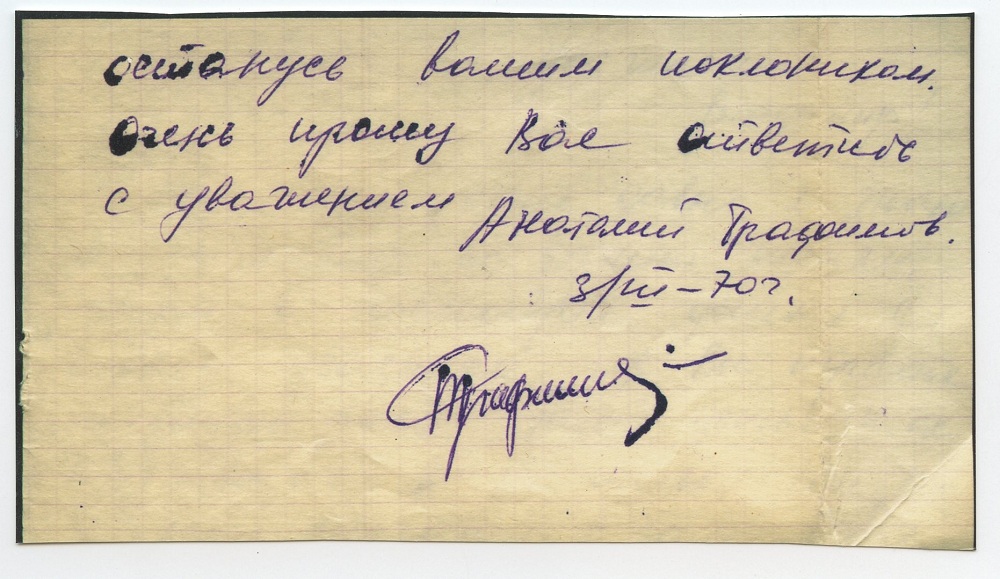 останусь вашим поклонником.
Очень прошу Вас ответить
с уважением
Анатолий Трафимов.
3/III-70г.